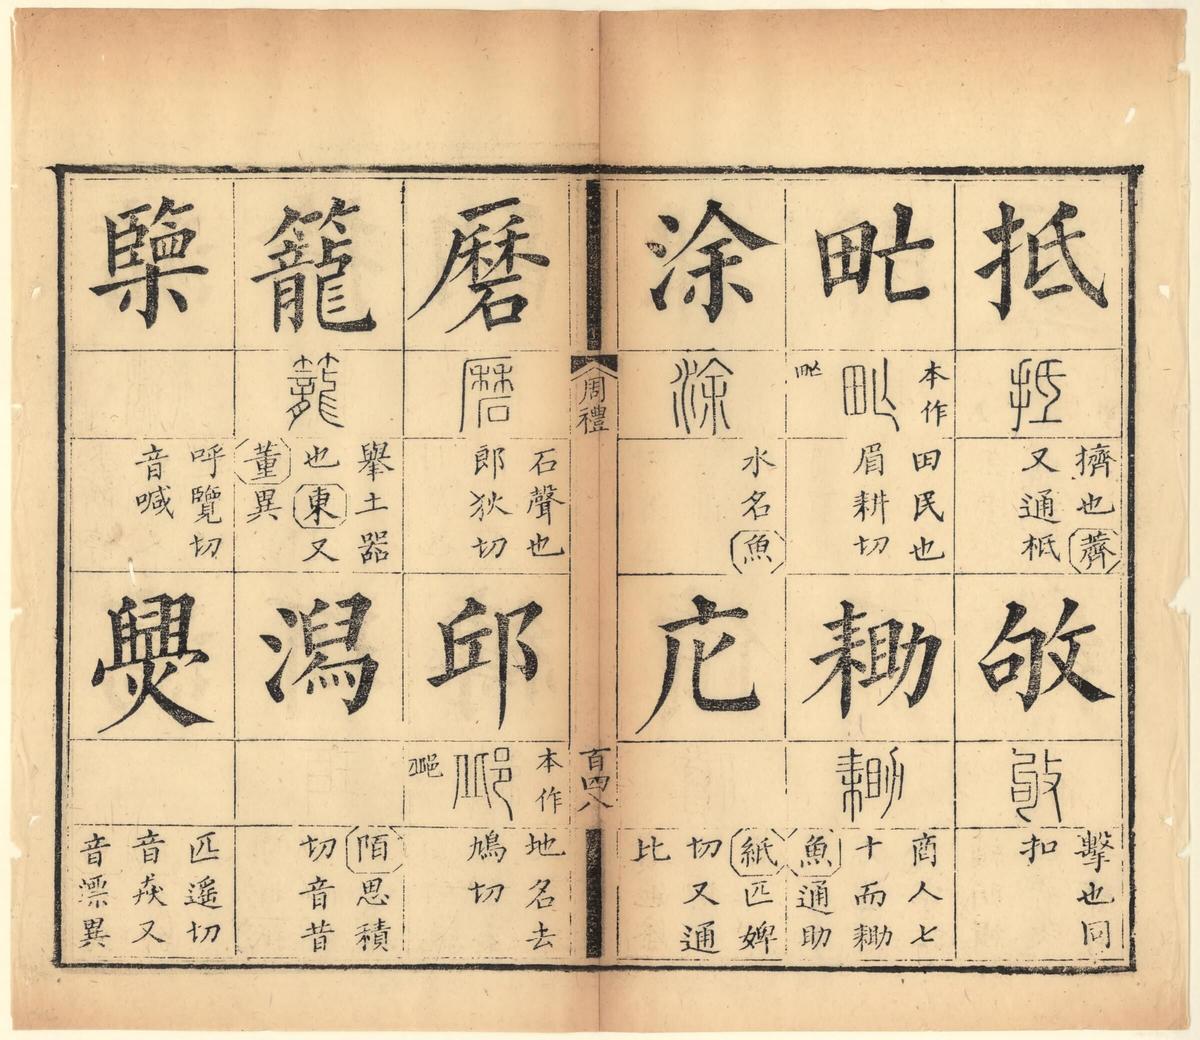 抵
抵
擠也薺
又通柢
敂
敂
擊也同
扣
甿
本作
甿
田民也
眉耕切
耡
耡
商人七
十而耡
魚通助
涂
涂
水名魚
庀
紙匹婢
切又通
比
周禮
百四八
磿
磿
石聲也
郎狄切
邱
本作
邱
地名去
鳩切
籠
籠
舉土器
也東又
董異
潟
陌思積
切音昔
㯺
呼覽切
音喊
爂
匹遙切
音猋又
音漂異